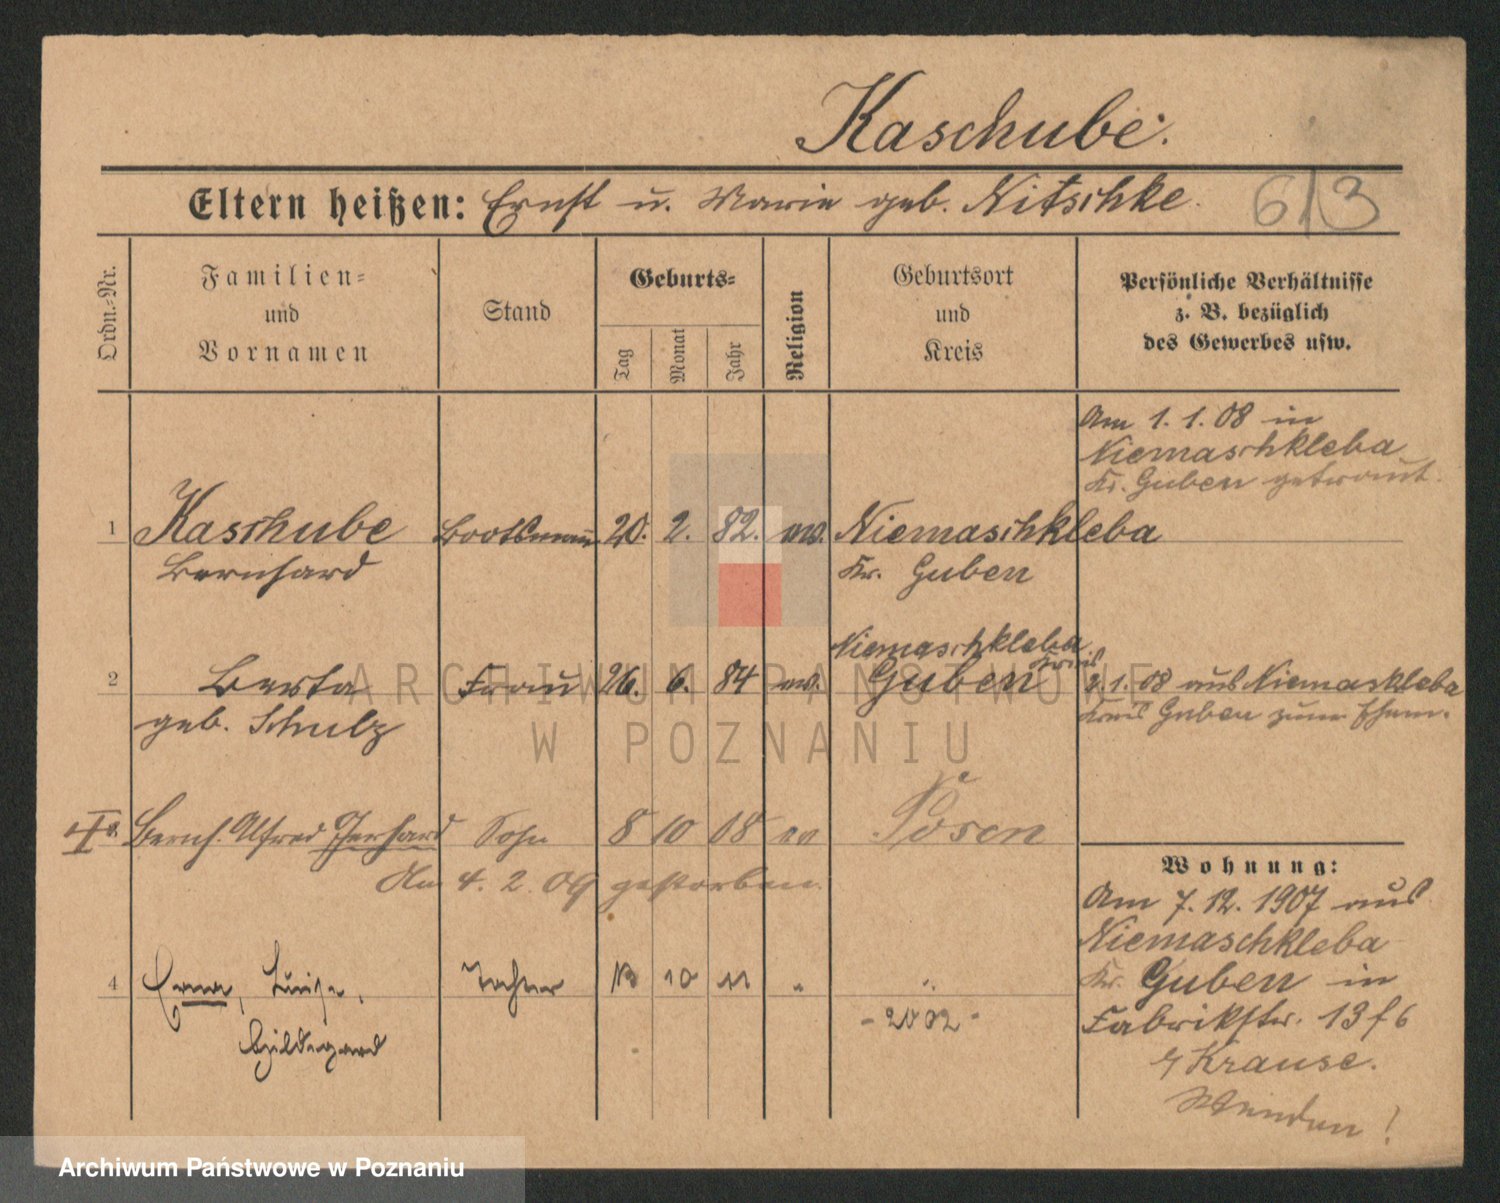 Kaschube.
Eltern heißen: Ernst u. Marie geb. Nitschke.
613
Ordn.-Nr.
Familien-
und
Vornamen
Stand
Geburts-
Tag
Monat
Jahr
Religion
Geburtsort
und
Kreis
Persönliche Verhältnisse
z. B. bezüglich
des Gewerbes usw.
Am 1. 1. 08 in
Niemaschkleba
Kr. Guben getraut.
1 Kaschube Bootsmann 20. 2. 82. ev. Niemaschkleba
Bernhard Kr. Guben
Niemaschkleba
Kreis
2 Berta Frau 26. 6. 84 ev. Guben 2. 1. 08 aus Niemaschkleba
geb. Schulz Kreis Guben zum Ehem.
Bernh. Alfred Gerhard Sohn 8 10 08 ev Posen
Am 4. 2. 09 gestorben.
4 Erna, Luise, Tochter 13 10 11 " "
Hildegard - 2002 -
Wohnung:
Am 7. 12. 1907 aus
Niemaschkleba
Kr. Guben in
Fabrikstr. 13 f 6
Krause.
Wenden!
ARCHIWUM PAŃSTWOWE
W POZNANIU
Archiwum Państwowe w Poznaniu